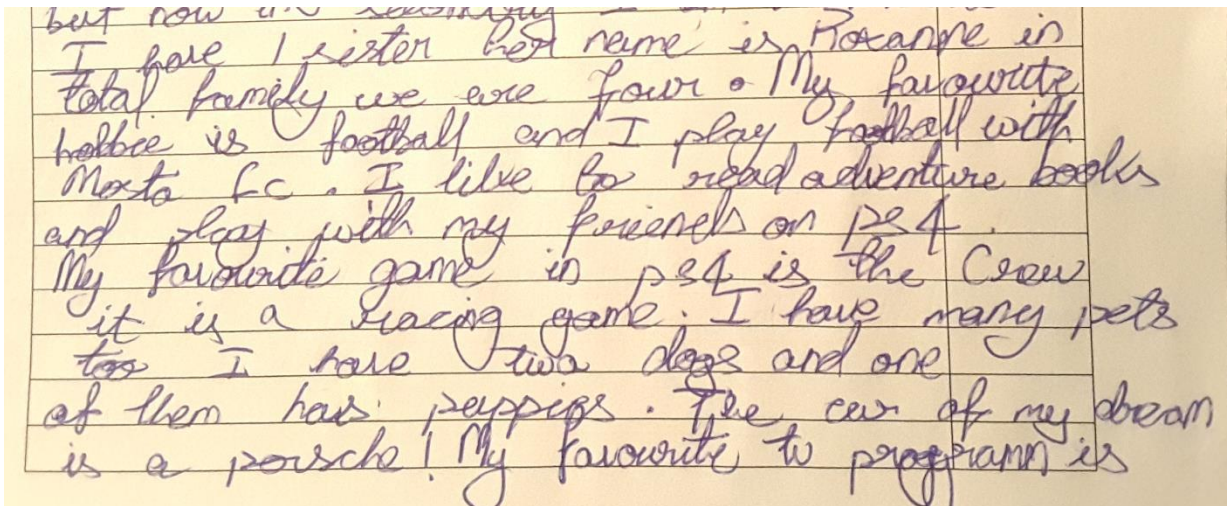 but now in
I have 1 sister her name is Roxanne in
total family we are four. My favourite
hobbie is football and I play football with
Mosta fc. I like to read adventure books
and play with my friends on ps4.
My favourite game in ps4 is the Crew
it is a racing game. I have many pets
too I have two dogs and one
of them has puppies. The car of my dream
is a porsche! My favourite tv programm is